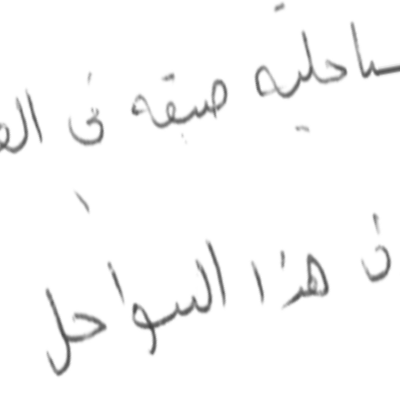 ساحلية ضيقه في
في هذا السواحل